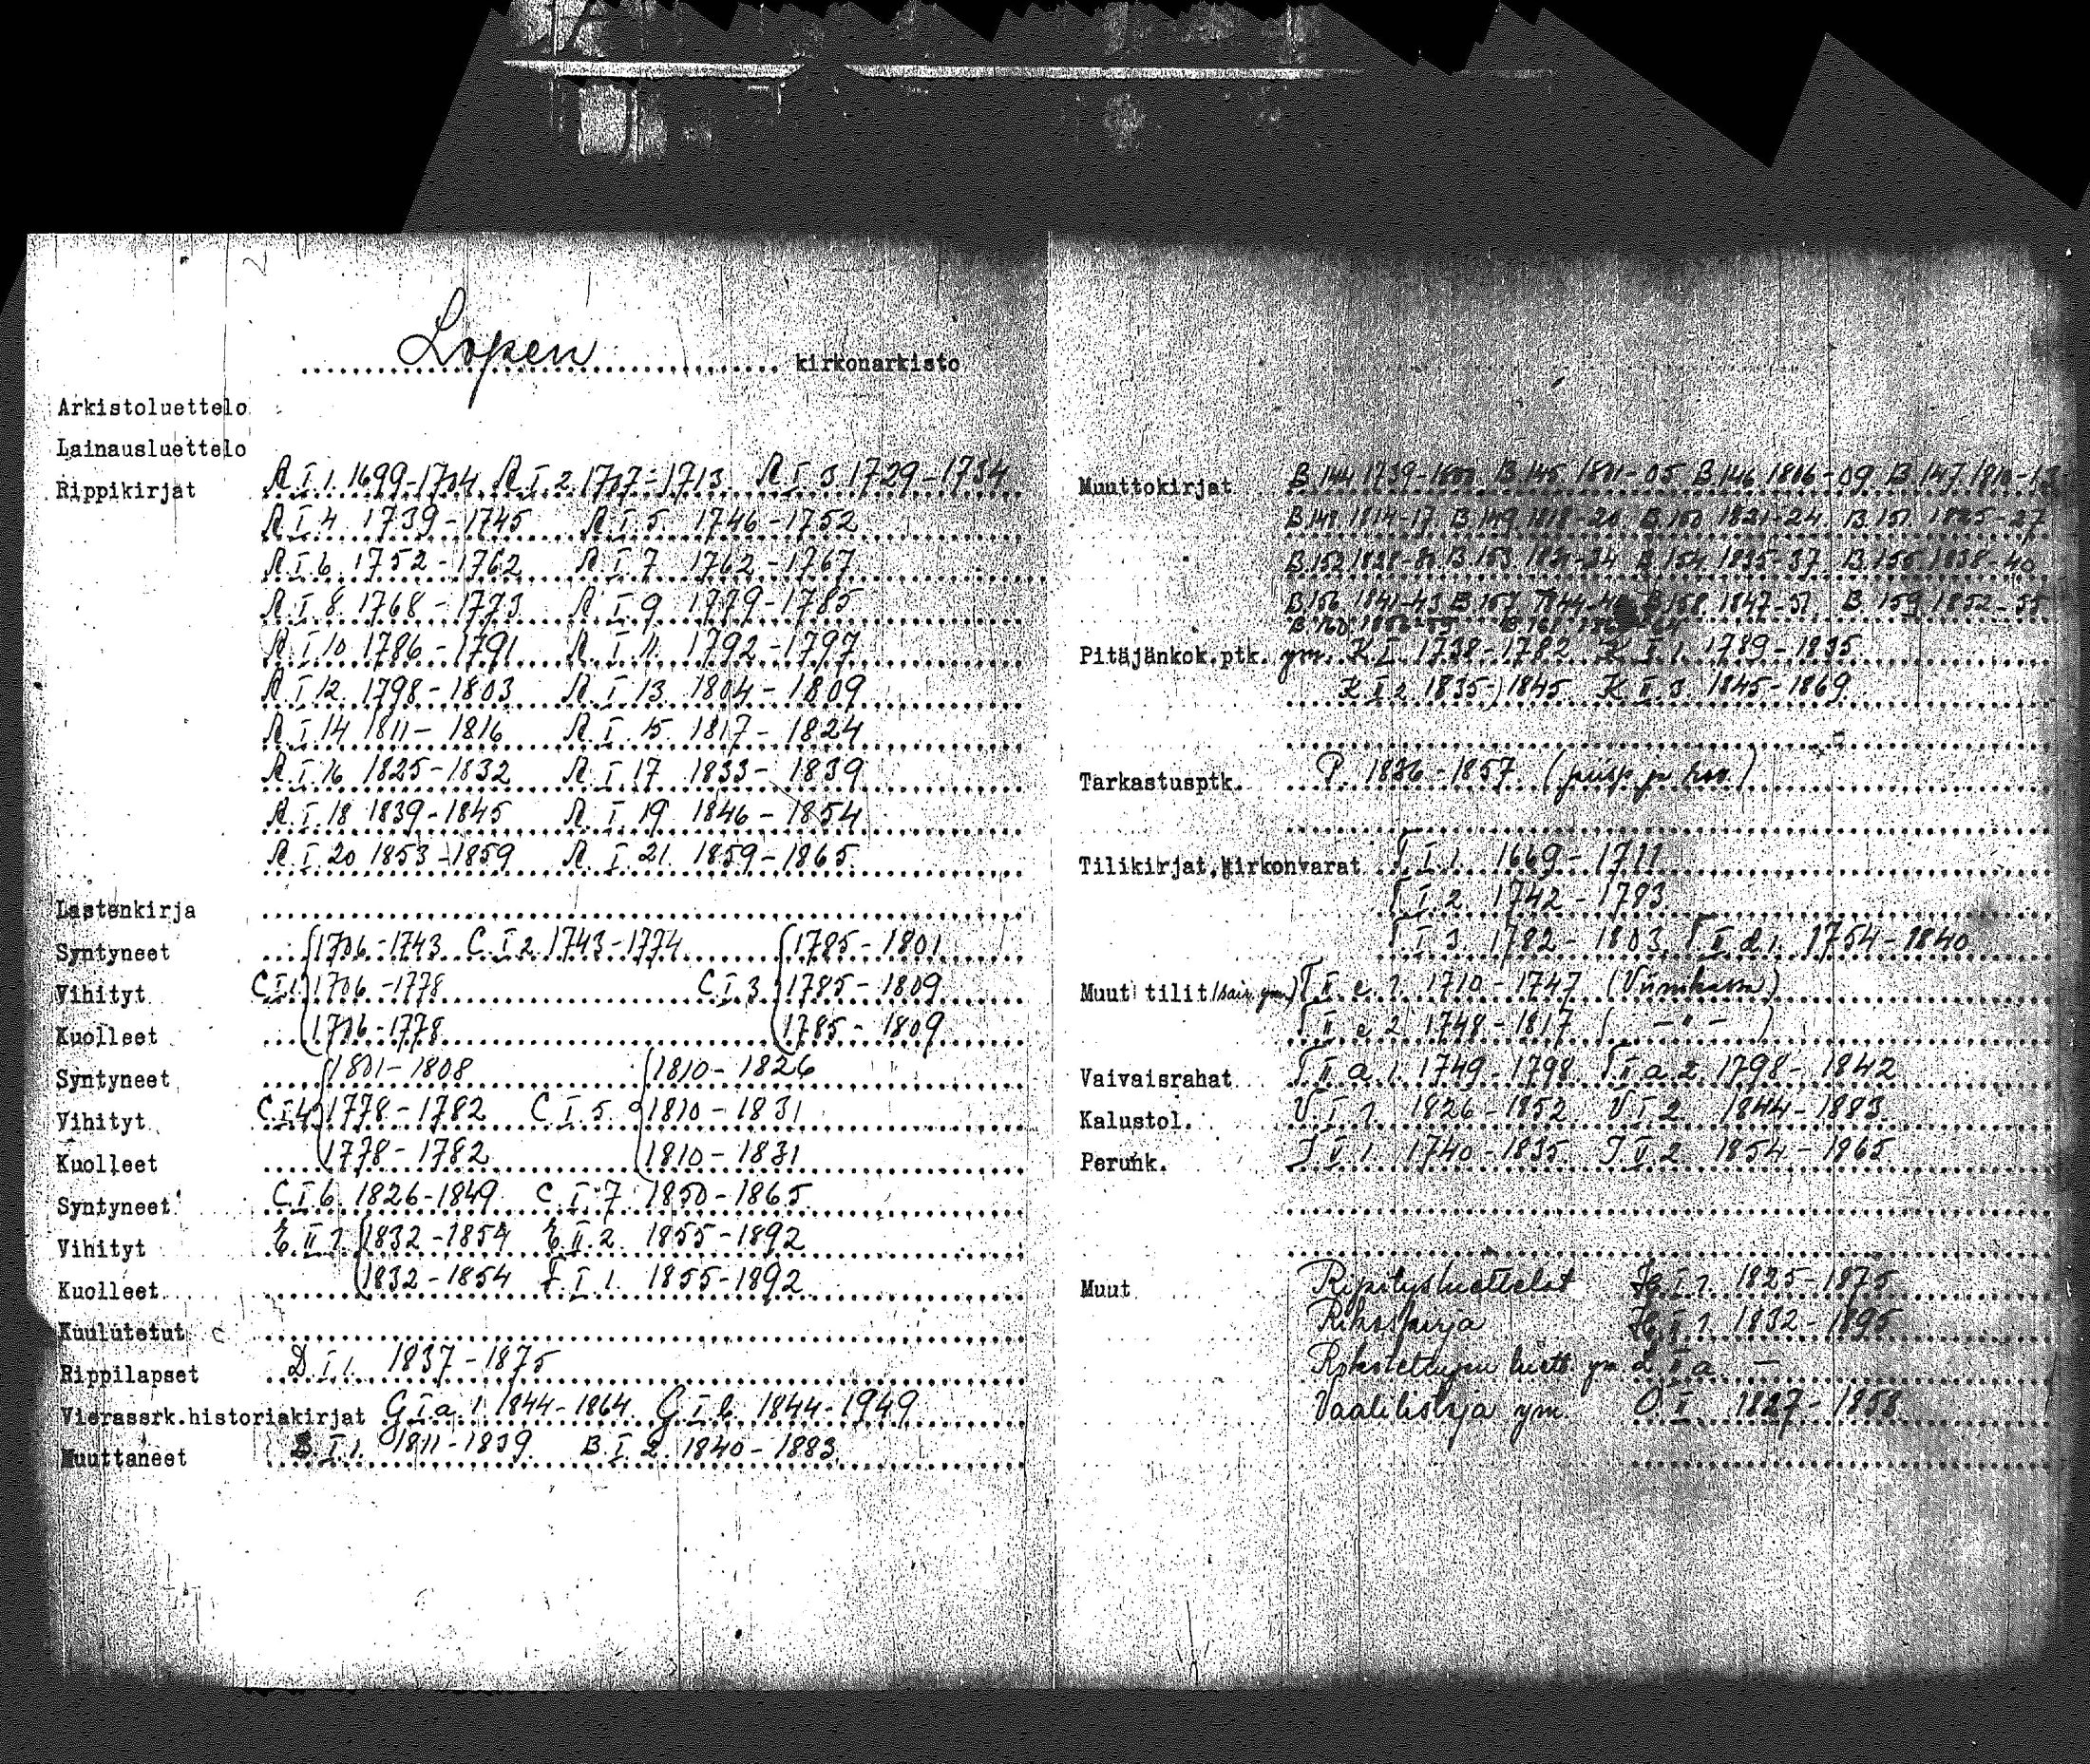 Lopen kirkonarkisto
Arkistoluettelo
Lainausluettelo
Rippikirjat A.I.1. 1699-1704 A.I.2. 1707-1713 A.I.3 1729-1734
A.I.4 1739-1745 A.I.5. 1746-1752
A.I.6. 1752-1762 A.I.7 1762-1767
A.I.8. 1768-1773 A.I.9 1779-1785
A.I.10 1786-1791 A.I.11. 1792-1797
A.I.12. 1798-1803 A.I.13. 1804-1809
A.I.14 1811-1816 A.I.15. 1817-1824
A.I.16 1825-1832 A.I.17 1833-1839
A.I.18 1839-1845 A.I.19 1846-1854
A.I.20 1853-1859 A.I.21. 1859-1865
Lastenkirja
Syntyneet 1706-1743 C.I.2 1743-1774 1785-1801
Vihityt C.I.1 1706-1778 C.I.3 1785-1809
Kuolleet 1706-1778 1785-1809
Syntyneet 1801-1808 1810-1826
Vihityt C.I.4 1778-1782 C.I.5. 1810-1831
Kuolleet 1778-1782 1810-1831
Syntyneet C.I.6. 1826-1849 C.I.7 1850-1865
Vihityt E.II.1. 1832-1854 E.II.2. 1855-1892
Kuolleet 1832-1854 F.I.1. 1855-1892
Kuulutetut
Rippilapset D.I.1. 1837-1875
Vierassrk.historiakirjat G.I.a.1 1844-1864 G.I.b. 1844-1949
Muuttaneet B.I.1. 1811-1839 B.I.2. 1840-1883
Muuttokirjat B.144 1739- B.145 1801-05 B.146 1806-09 B.147 1810-13
B.148 1814-17 B.149 1818-20 B.150 1821-24 B.151 1825-27
B.152 1828- B.153 1831-34 B.154 1835-37 B.155 1838-40
B.156 1841-43 B.157 1844- B.158 1847-51 B.159 1852-55
Pitäjänkok.ptk. ym. K.I. 1738-1782 K.I.1. 1789-1835
K.I.2 1835-1845 K.II.3. 1845-1869
Tarkastusptk. P. 1836-1857 (piisp. ja rov.)
Tilikirjat, kirkonvarat T.I.1. 1669-1711
T.I.2. 1742-1793
T.I.3. 1782-1803 T.II.d.1. 1754-1840
Muut tilit T.II.e.1. 1710-1747 (Viinikassa)
T.II.e.2 1748-1817 ( -"- )
Vaivaisrahat T.II.a.1. 1749-1798 T.II.a.2. 1798-1842
Kalustol. V.I.1. 1826-1852 V.I.2. 1844-1883
Perunk. I.V.1. 1740-1835 I.V.2 1854-1865
Muut Ripitysluettelot H.I.1. 1825-1875
Rikoskirja H.II.1. 1832-1895
Rokotettujen luett. ym. L.II.a -
Vaalilistoja ym. O.I. 1827-1858